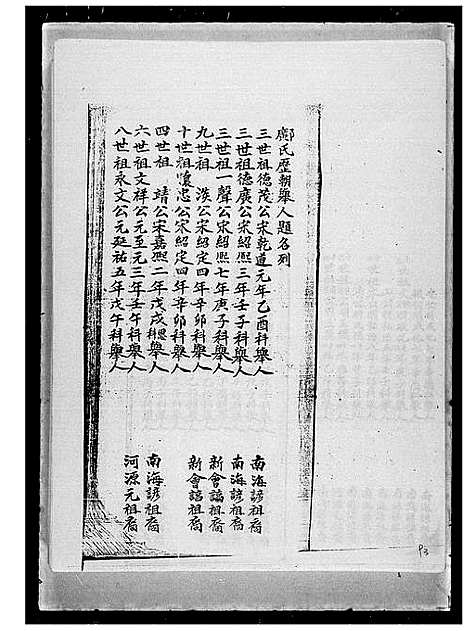 鄺氏歷朝舉人題名列
三世祖德茂公宋乾道元年乙酉科舉人 南海諺祖裔
三世祖德廣公宋紹熙三年壬子科舉人 南海諺祖裔
三世祖一聲公宋紹熙七年庚子科舉人 新會諤祖裔
九世祖 淡公宋紹定四年辛卯科舉人 新會諤祖裔
十世祖懷忠公宋紹定四年辛卯科舉人
四世祖 靖公宋嘉熙二年戊戌科舉人 南海諺祖裔
六世祖文祥公元至元三年壬午科舉人 河源元祖裔
八世祖永文公元延祐五年戊午科舉人
93